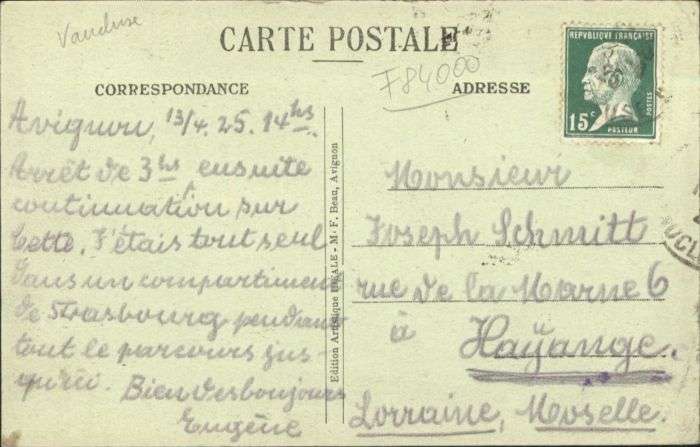 Vaucluse
CARTE POSTALE
F84000
CORRESPONDANCE
ADRESSE
REPUBLIQUE FRANÇAISE
15c
POSTES
PASTEUR
Avignon, 13/4. 25. 14 hs.
Arrêt de 3 hs ensuite
continuation sur
Cette. J'étais tout seul
dans un compartiment
de Strasbourg pendant
tout le parcours jus-
qu'ici. Bien des bonjours
Eugène
Edition Artistique IDEALE - M. F. Beau, Avignon
Monsieur
Joseph Schmitt
rue de la Marne 6
à Hayange.
Lorraine, Moselle.
UCL